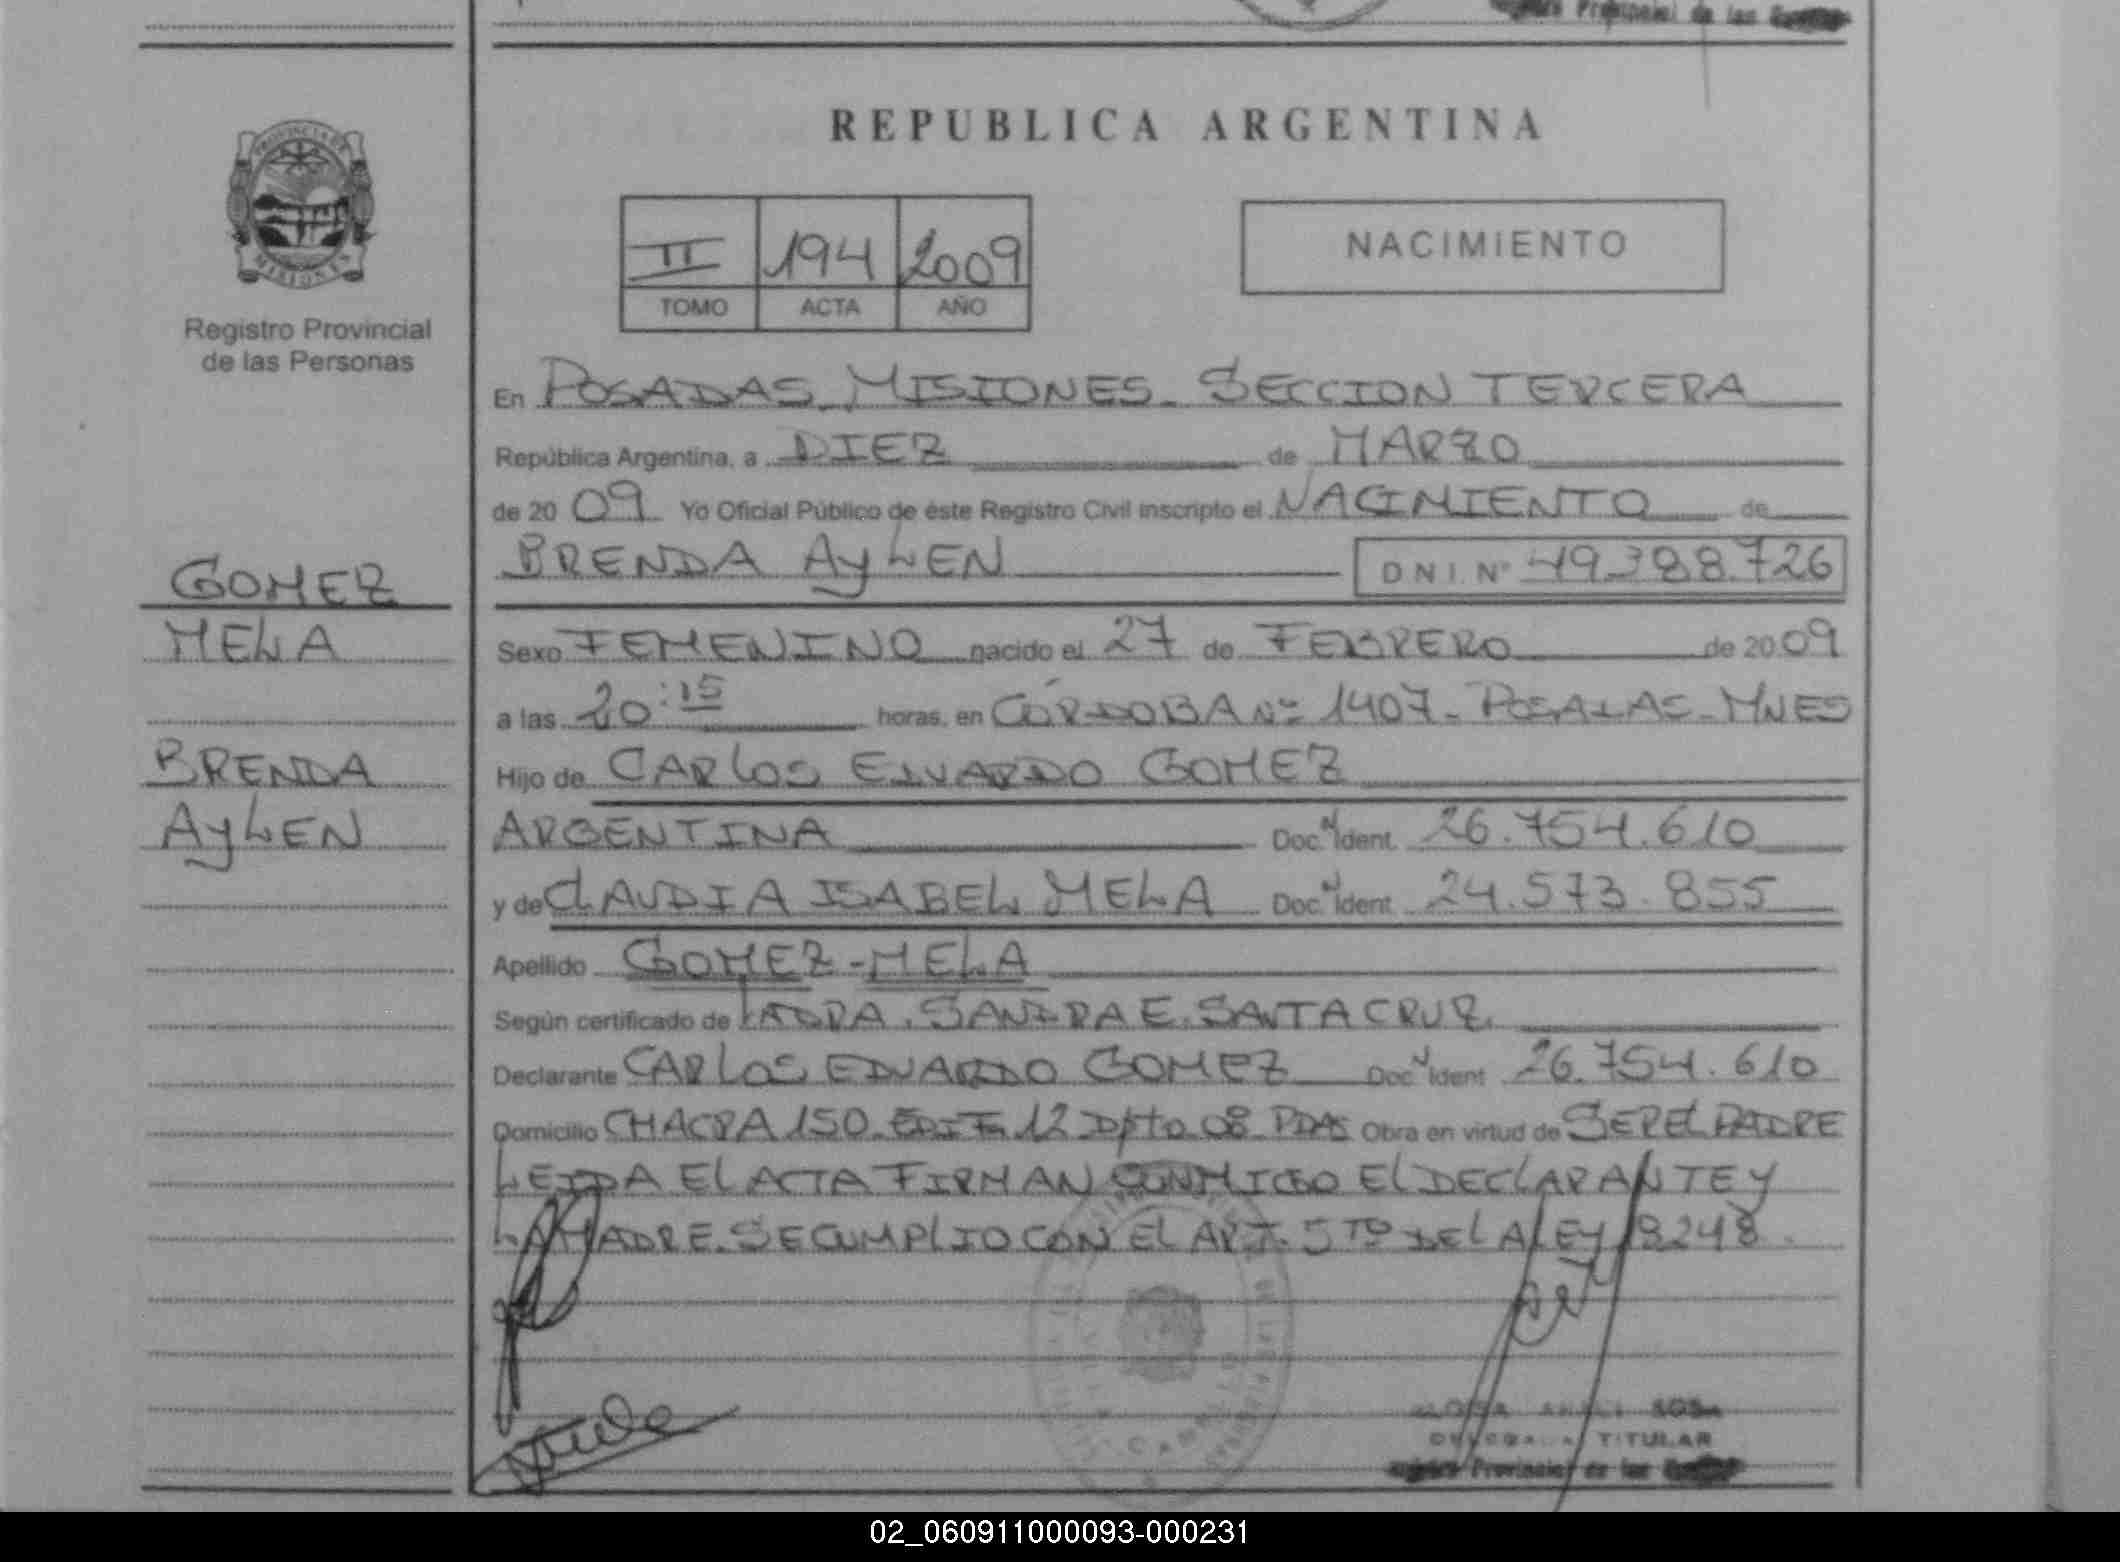 Provincial de las
REPUBLICA ARGENTINA
PROVINCIA DE
MISIONES
Registro Provincial
de las Personas
II 194 2009
TOMO ACTA AÑO
NACIMIENTO
En POSADAS_MISIONES_SECCION TERCERA
República Argentina, a DIEZ de MARZO
de 20 09 Yo Oficial Público de éste Registro Civil inscripto el NACIMIENTO de
BRENDA AyLEN D N I. Nº 49.388.726
GOMEZ
MELA
BRENDA
AyLEN
Sexo FEMENINO nacido el 27 de FEBRERO de 20 09
a las 20:15 horas, en CÓRDOBA Nº 1407_POSADAS_MNES
Hijo de CARLOS EDUARDO GOMEZ
ARGENTINA Doc. N Ident. 26.754.610
y de CLAUDIA ISABEL MELA Doc. N Ident. 24.573.855
Apellido GOMEZ-MELA
Según certificado de LA DRA. SANDRA E. SANTA CRUZ.
Declarante CARLOS EDUARDO GOMEZ Doc. N Ident 26.754.610
Domicilio CHACRA 150 EDIF 12 Dpto 08 PDAS Obra en virtud de SER EL PADRE
LEIDA El ACTA FIRMAN CONMIGO El DECLARANTE Y
LA MADRE. SE CUMPLIO CON El ART. 5TO DE LA LEY 18248.
TITULAR
Provincial de las
02_060911000093-000231